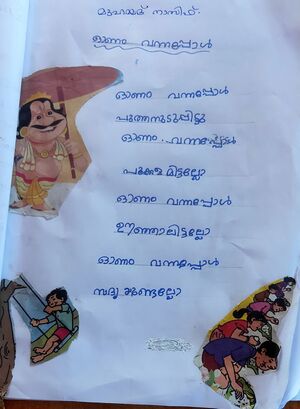 മുഹമ്മദ് നാസിഫ്.
ഓണം വന്നപ്പോൾ
ഓണം വന്നപ്പോൾ
പുത്തനുടുപ്പിട്ടു
ഓണം വന്നപ്പോൾ
പൂക്കളമിട്ടല്ലോ
ഓണം വന്നപ്പോൾ
ഊഞ്ഞാലിട്ടല്ലോ
ഓണം വന്നപ്പോൾ
സദ്യയുണ്ടല്ലോ